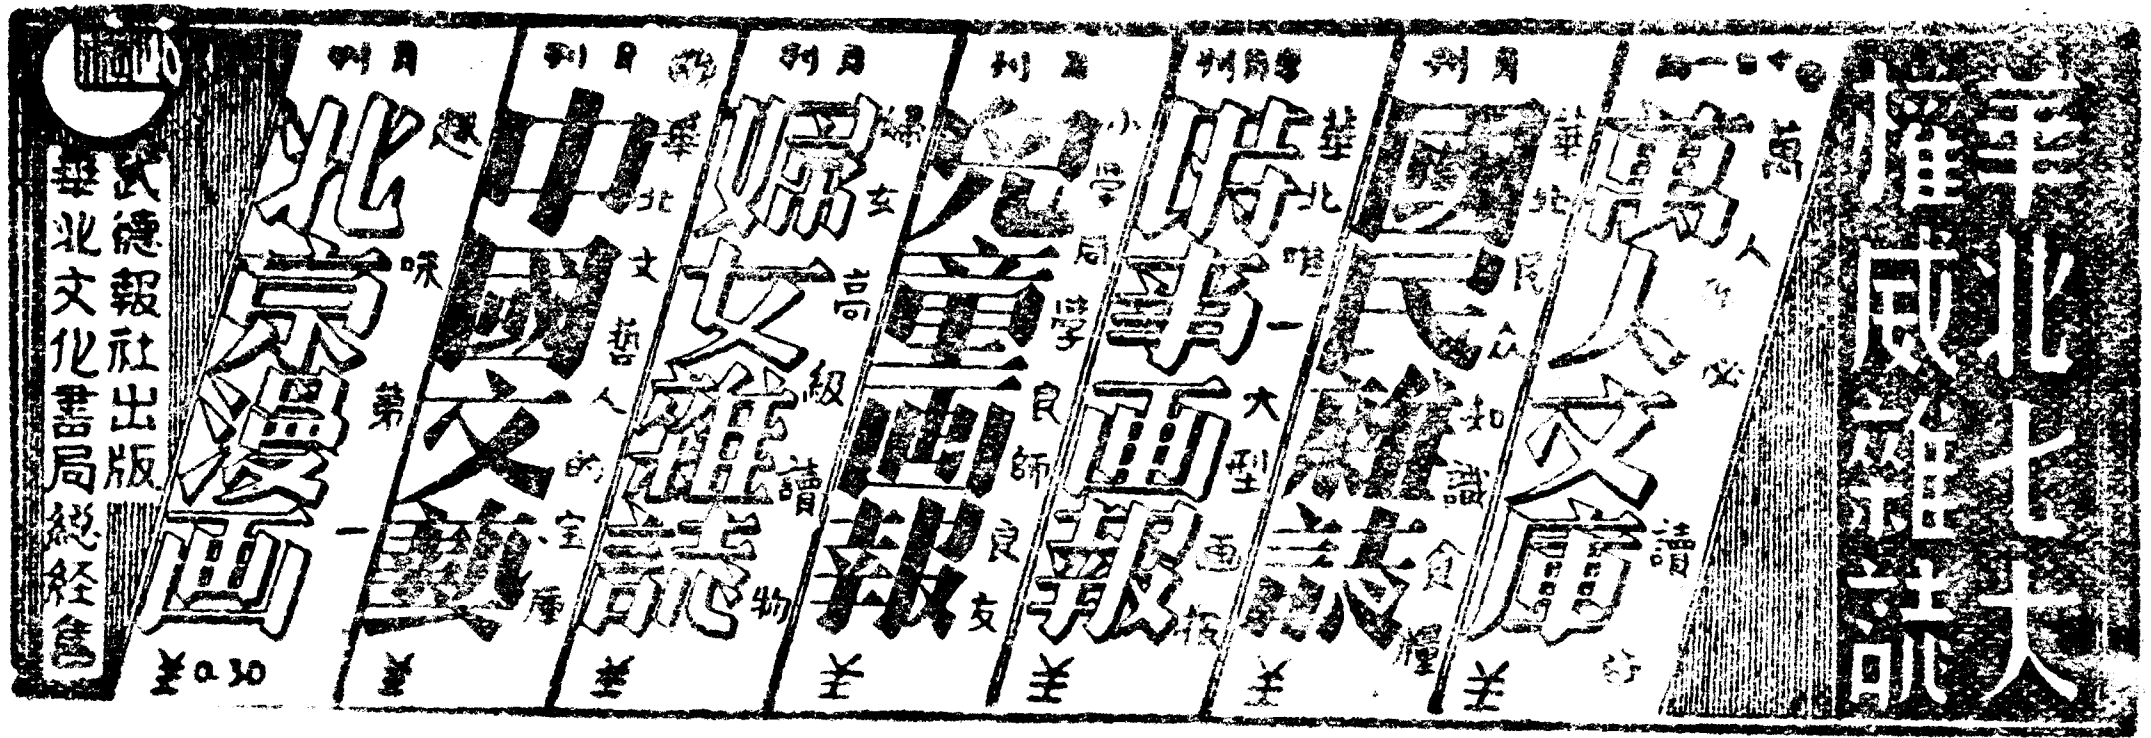 華北七大
権威雑誌
萬人文庫
萬人必讀
月刊
國民雑誌
華北民众知識食糧
¥
時事画報
華北唯一大型画报
¥
月刊
兒童画報
小学局学良師良友
¥
月刊
婦女雑誌
婦女高級讀物
¥
月刊
中國文藝
華北文藝人的宝庫
¥
月刊
北京漫画
趣味第一
¥0.30
武德報社出版
華北文化書局総経售